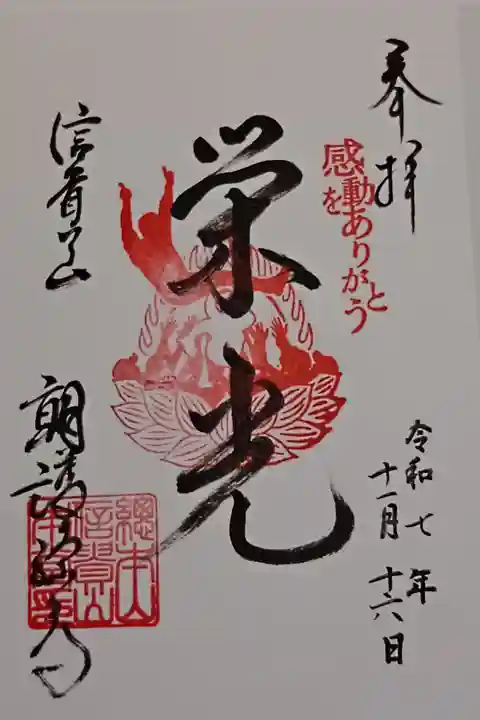 奉拝
感動を
ありがとう
令和七年
十一月十六日
栄光
信貴山
朝護孫子寺
總本山
信貴山